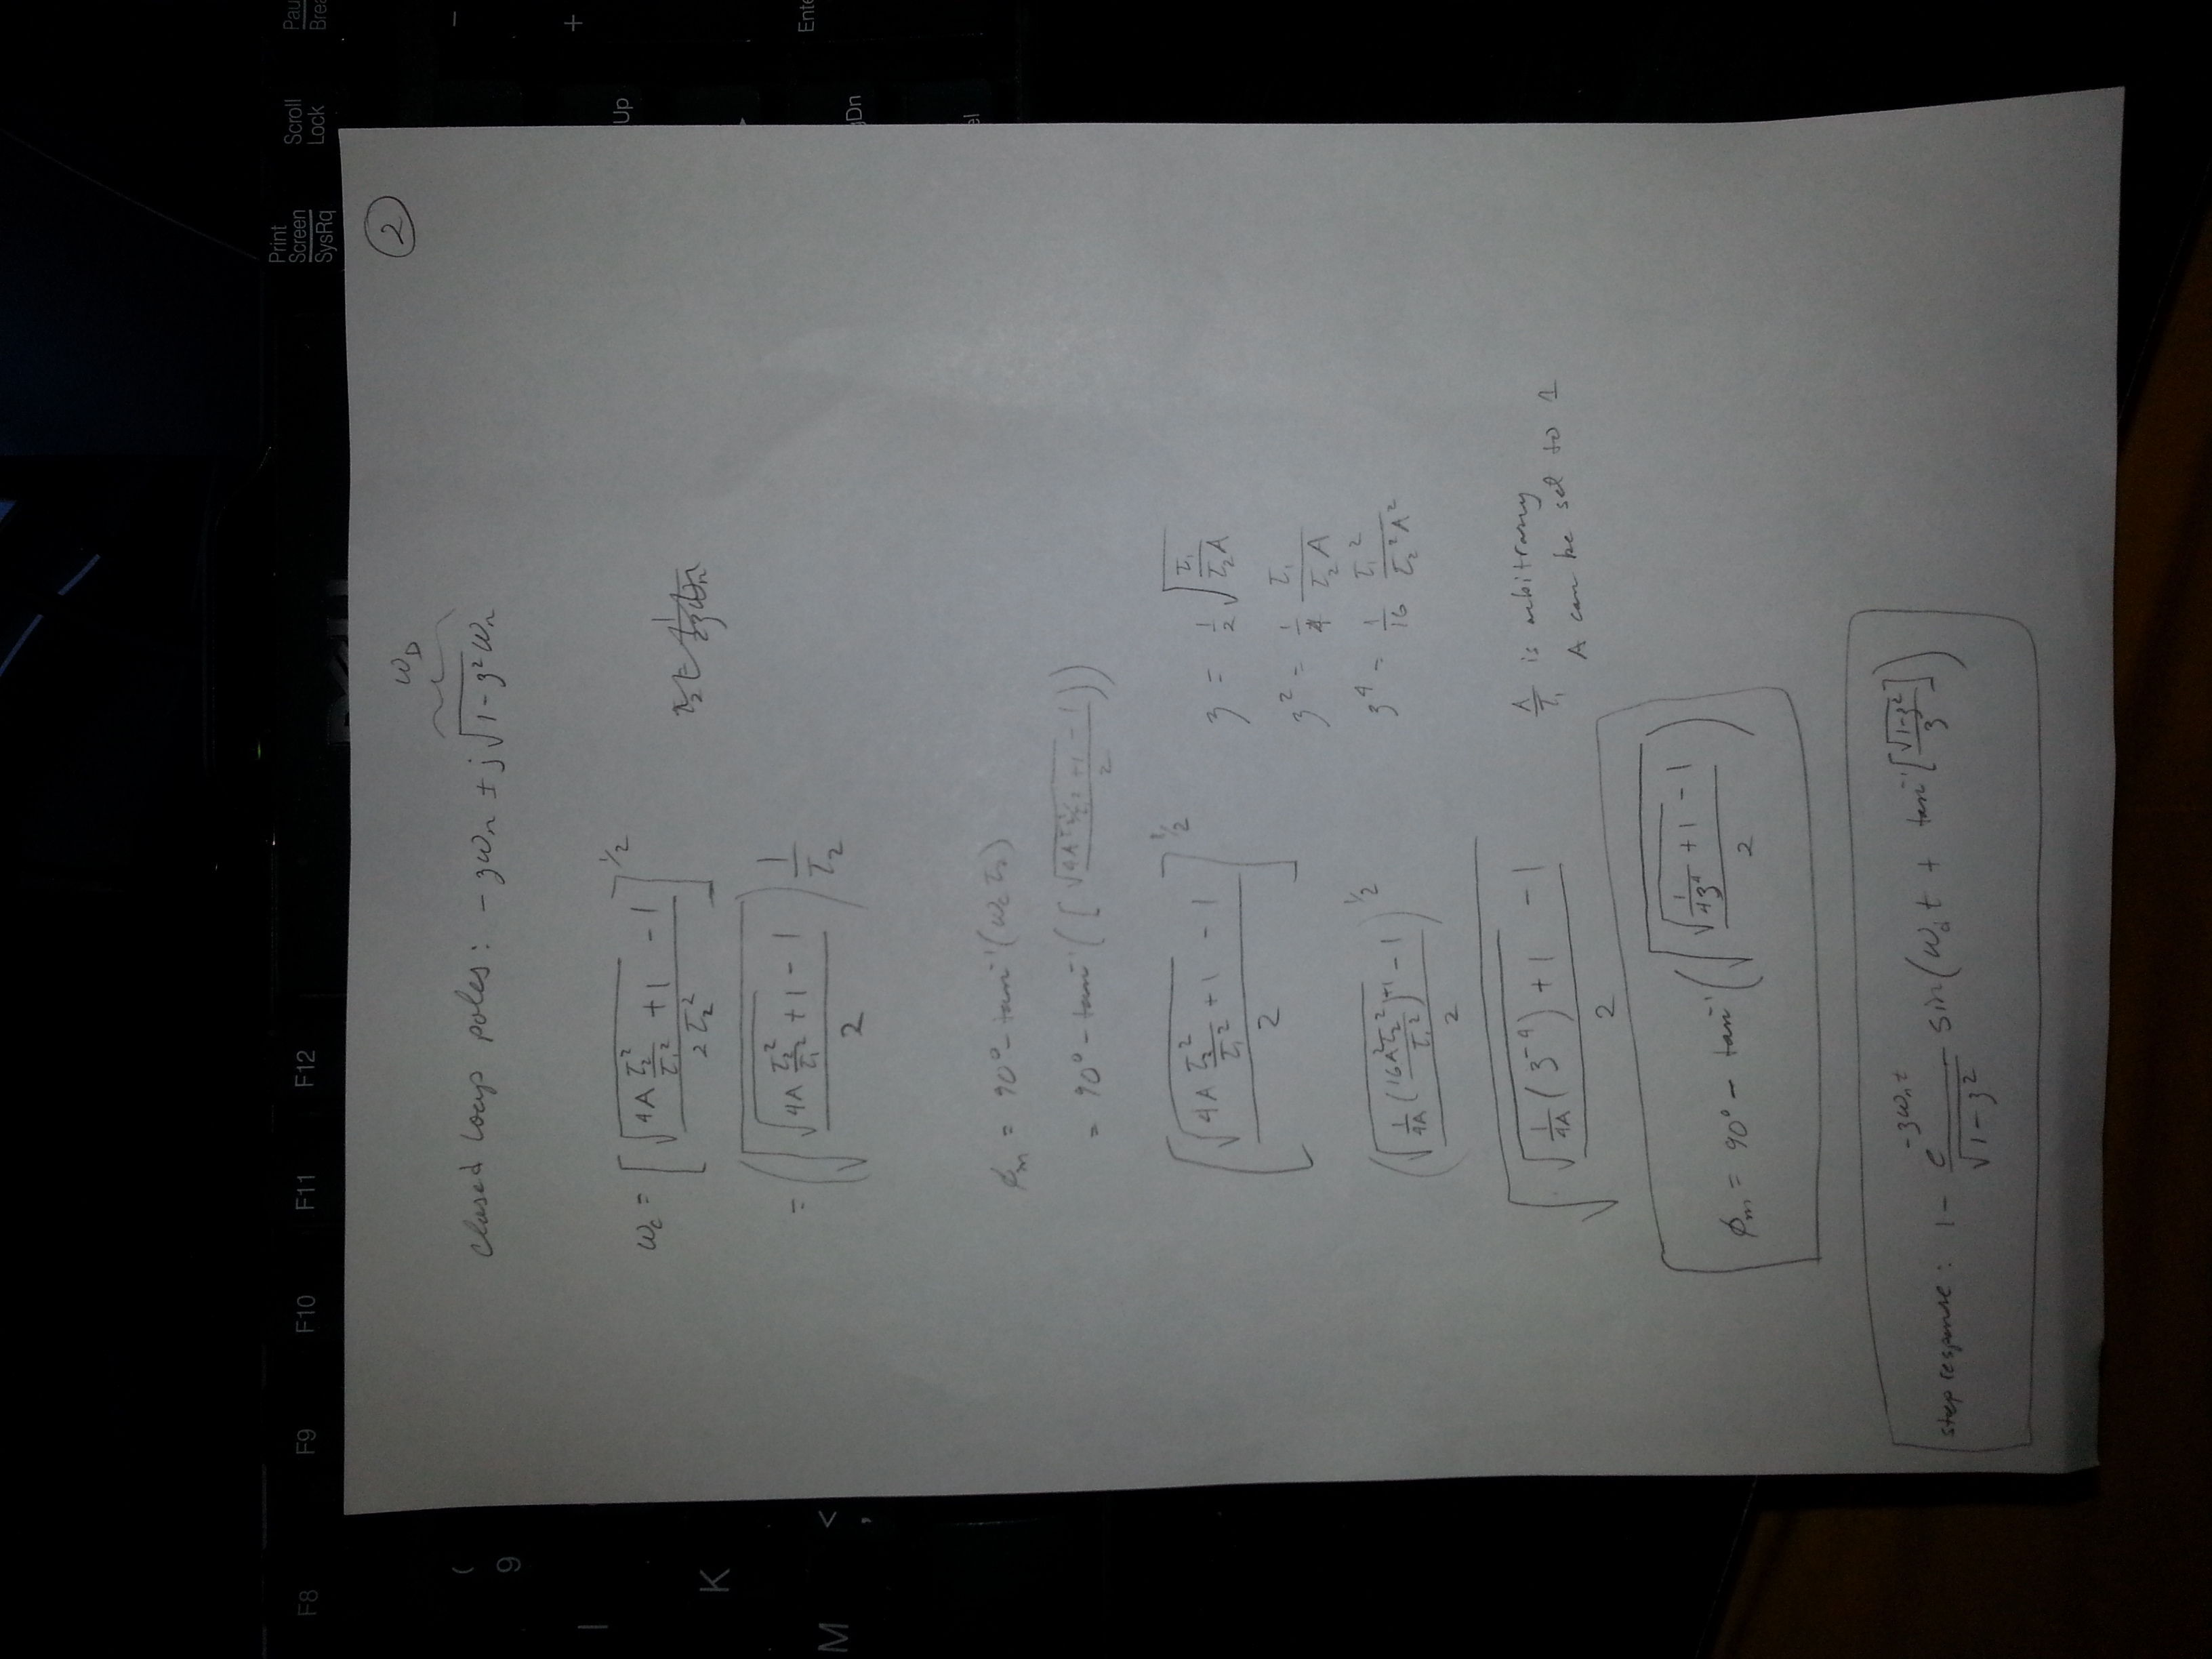 F8 F9 F10 F11 F12
Print
Screen
SysRq
Scroll
Lock
Pau
Brea
(
9
K
M
<
,
-
+
Up
Ente
Dn
el
2
ω_D
closed loop poles: -ʒω_n ± j√(1-ʒ²) ω_n
ω_c = [ (√(4A τ₂²/τ₁² + 1) - 1) / (2τ₂²) ]^½
= ( √( (√(4A τ₂²/τ₁² + 1) - 1) / 2 ) ) 1/τ₂
φ_m = 90° - tan⁻¹(ω_c τ₂)
= 90° - tan⁻¹( [ (√(4A τ₂²/τ₁² + 1) - 1) / 2 ) )
[ (√(4A τ₂²/τ₁² + 1) - 1) / 2 ]^½
ʒ = ½ √(τ₁/(τ₂A))
ʒ² = 1/4 τ₁/(τ₂A)
( (√(1/(4A) (16A²τ₂²/τ₁²) + 1) - 1) / 2 )^½
ʒ⁴ = 1/16 τ₁²/(τ₂²A²)
√( (√(1/(4A) (ʒ⁻⁴) + 1) - 1) / 2 )
A/τ₁ is arbitrary
A can be set to 1
φ_m = 90° - tan⁻¹( √( (√(1/(4ʒ⁴) + 1) - 1) / 2 ) )
step response: 1 - e^(-ʒω_n t)/√(1-ʒ²) sin(ω_d t + tan⁻¹[√(1-ʒ²)/ʒ])